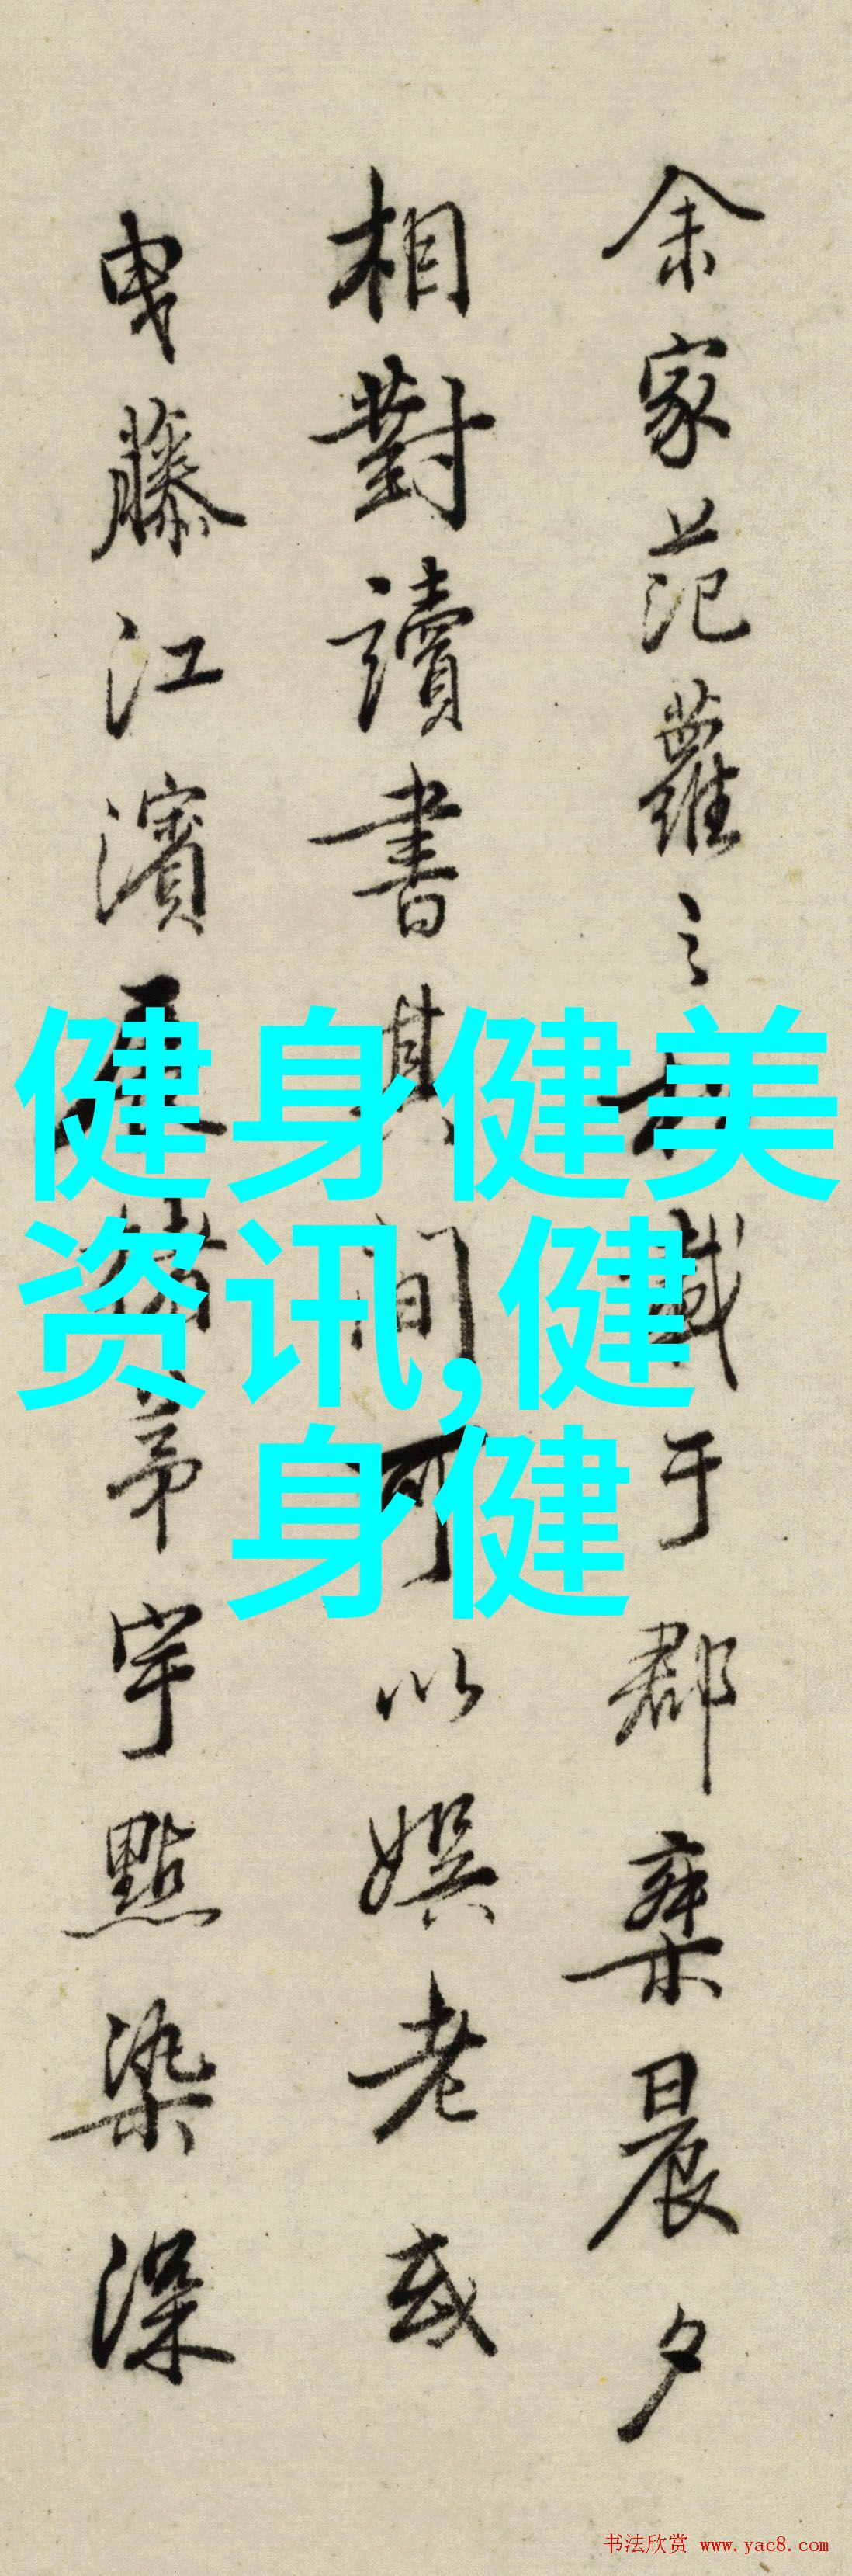 余家范蘿之
于郡棐晨夕
相對讀書其間可以娛老或
曳藤江濱
茅宇點染深
健身健美
资讯,健
身健
书法欣赏 www.yac8.com